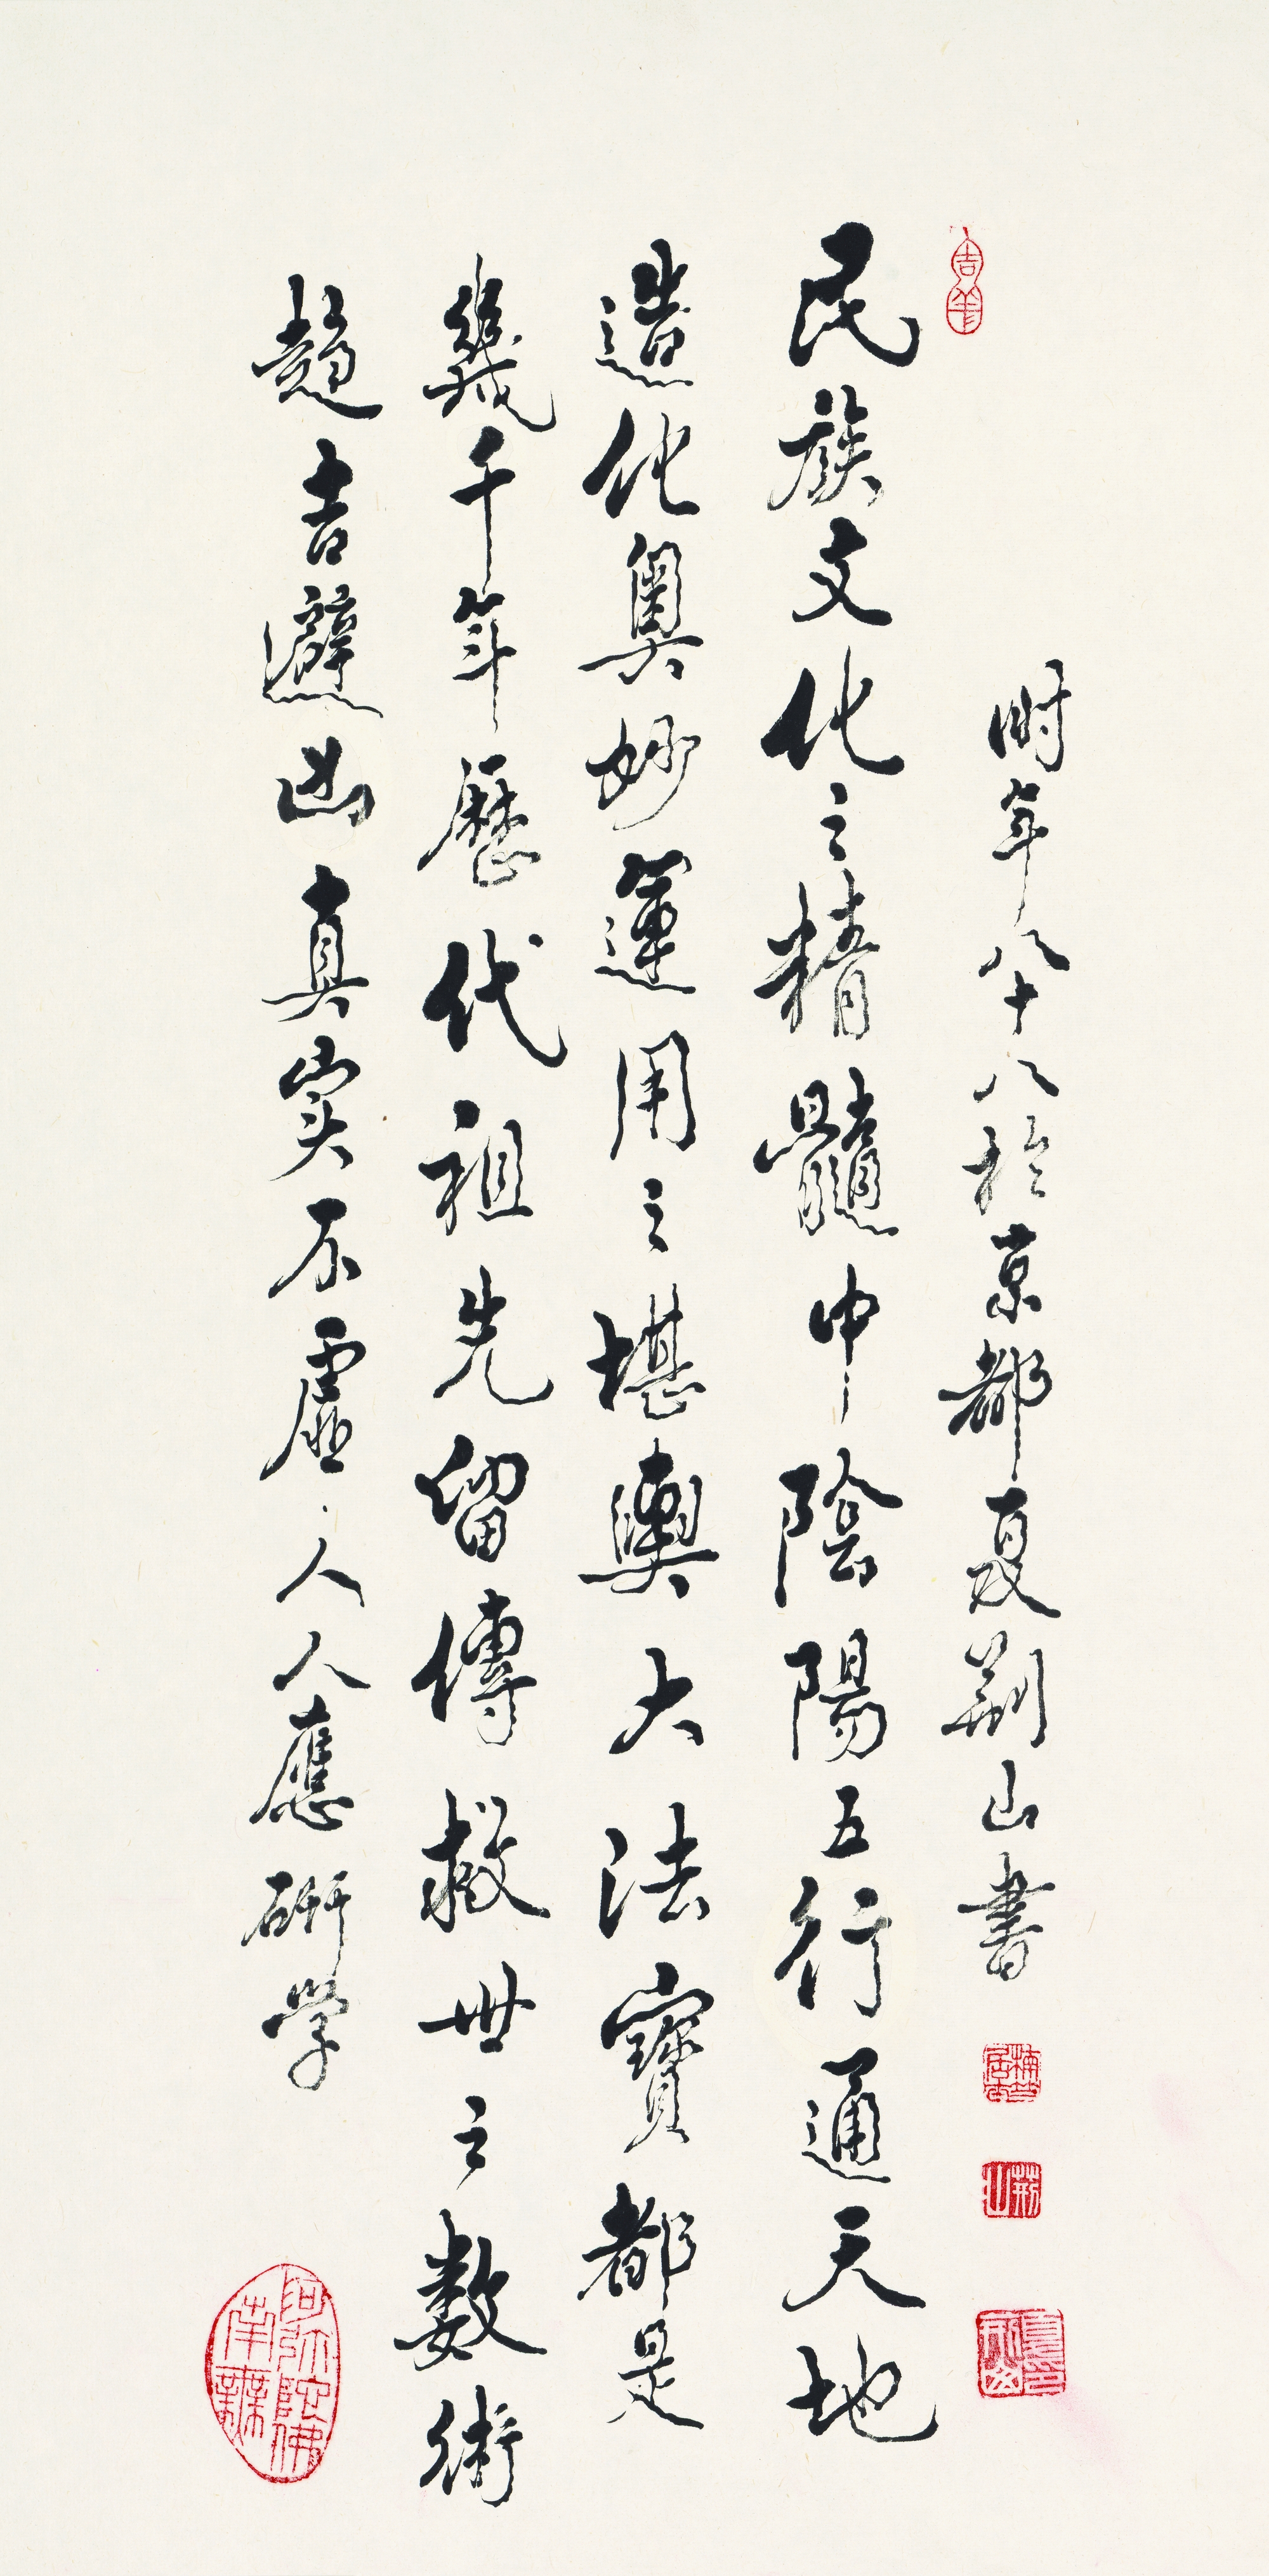 時年八十八於京都夏荊山書
民族文化之精髓中陰陽五行通天地
造化奧妙運用之堪輿大法寶都是
幾千年歷代祖先留傳救世之数術
趨吉避凶真实不虛人人應研学
吉羊
荊山
南無阿弥陀佛